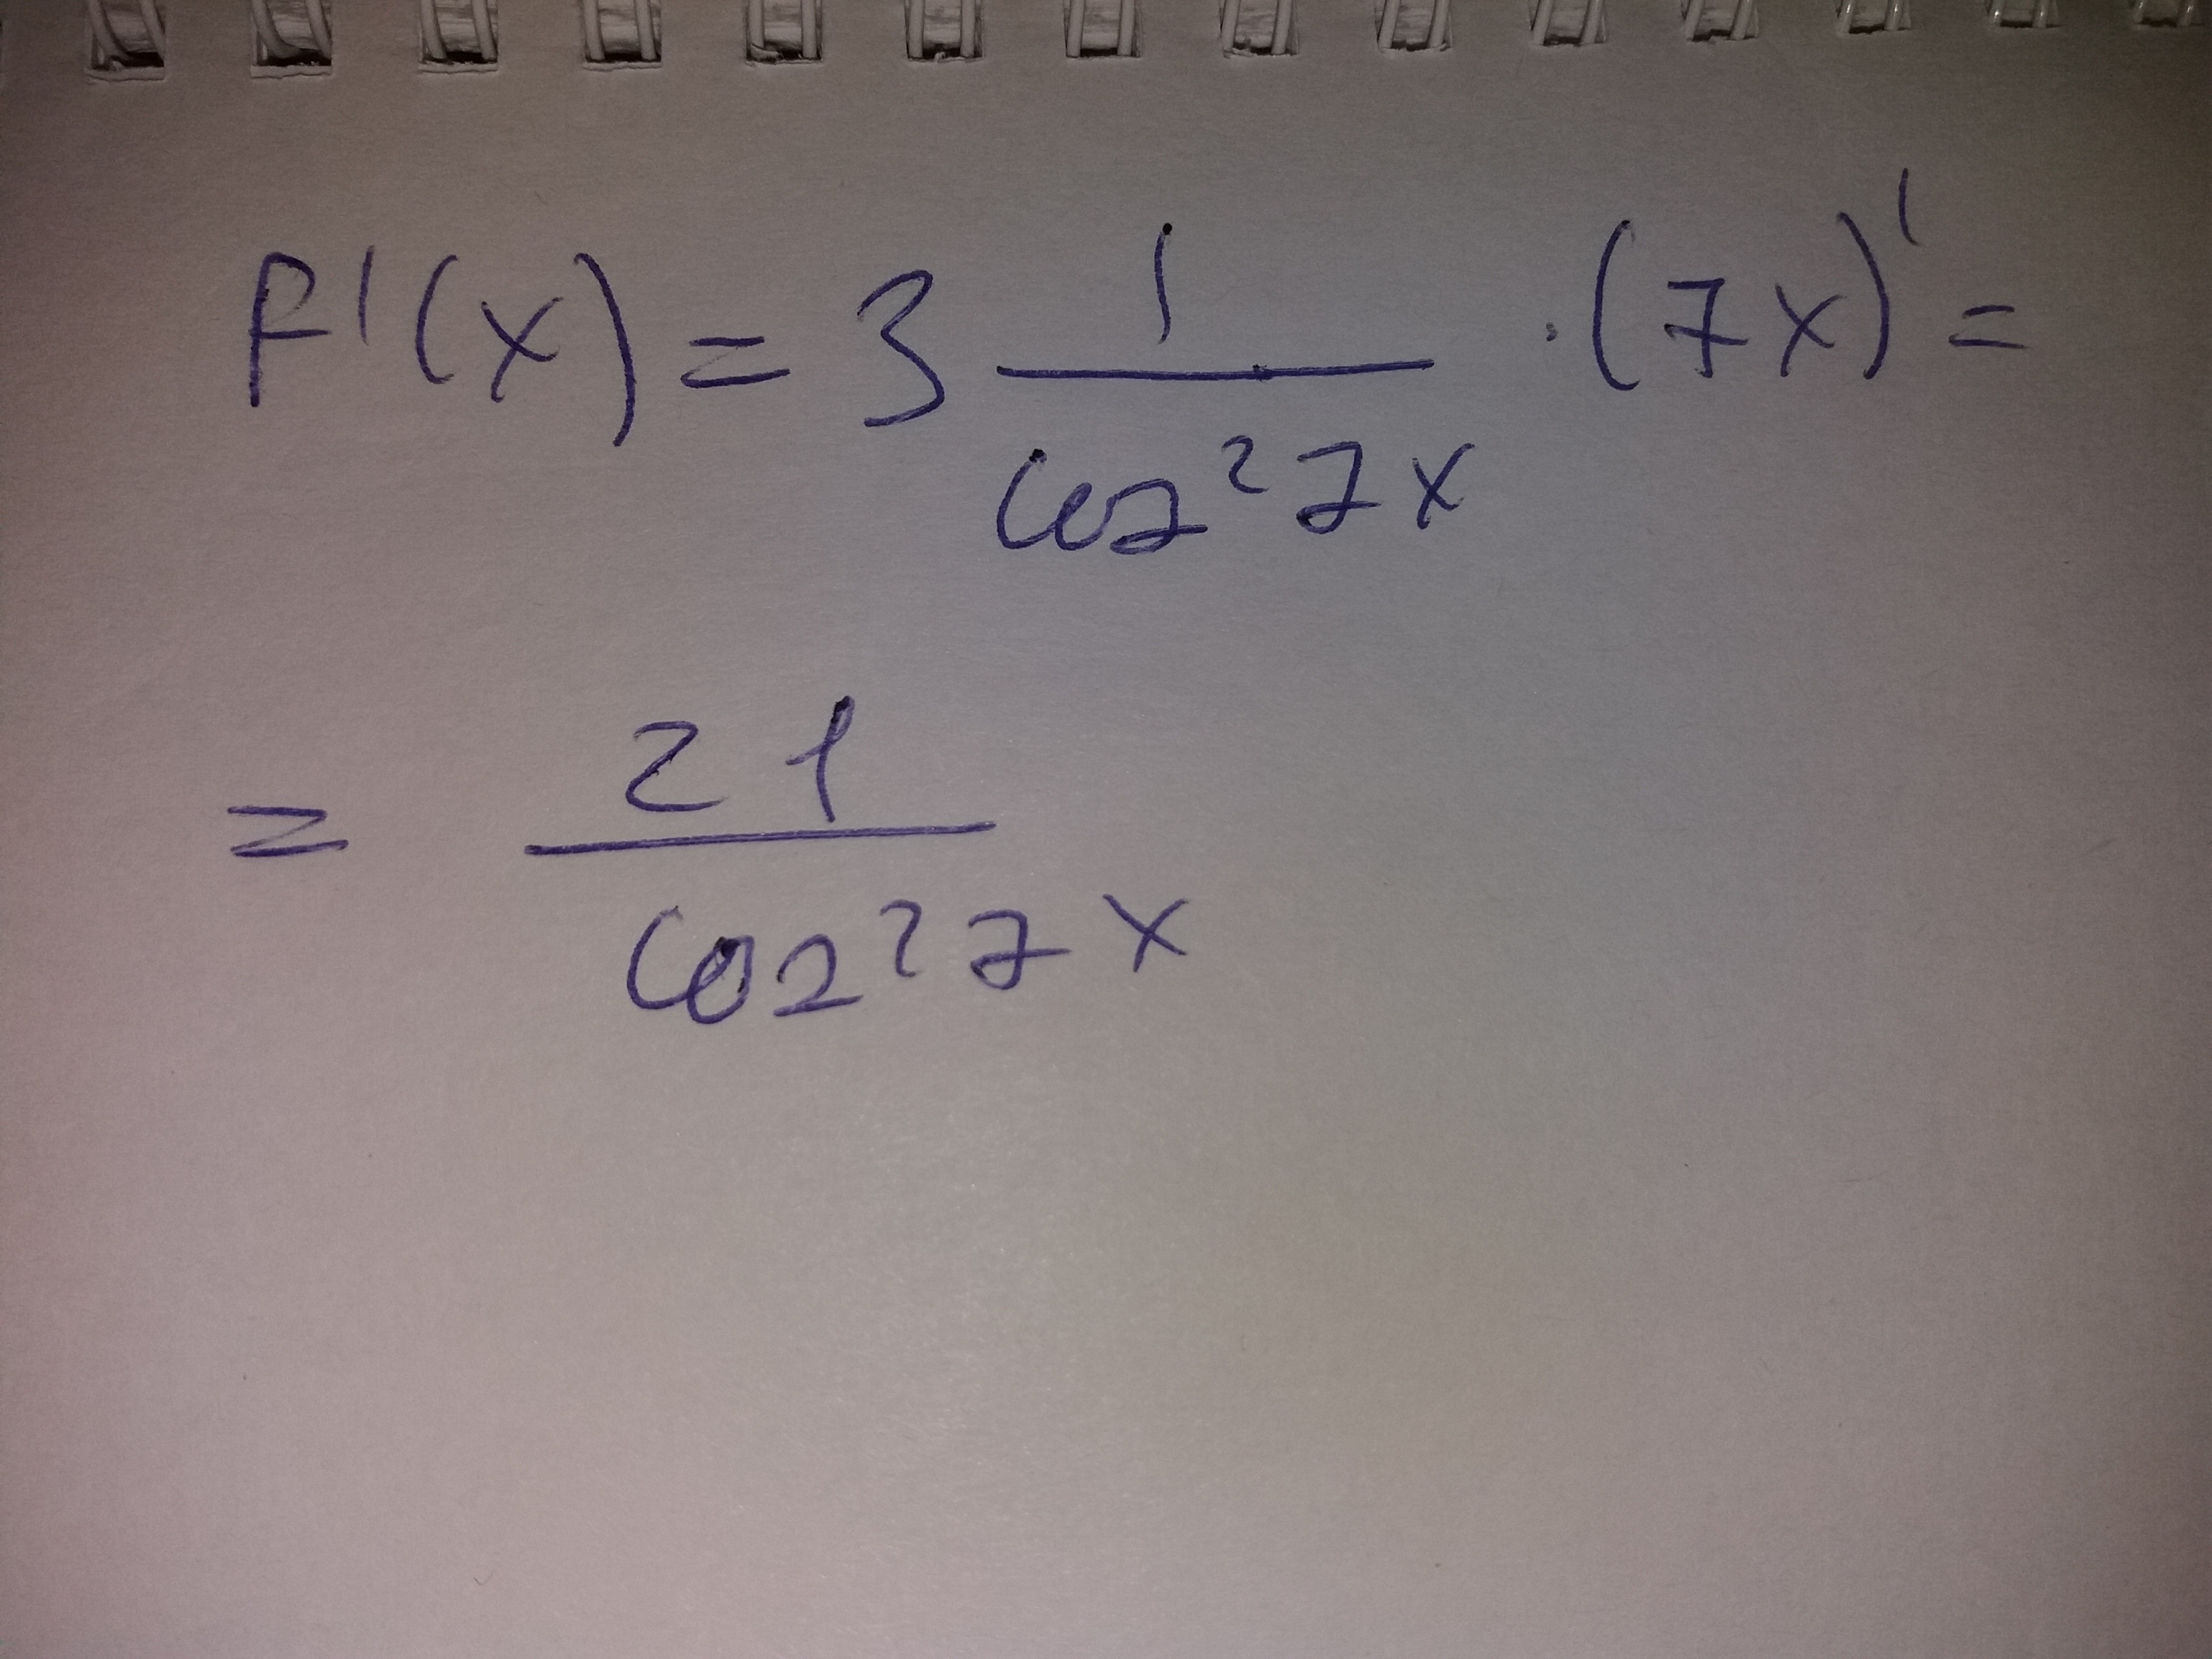 F'(x) = 3 1/cos²7x · (7x)' =
= 21/cos²7x